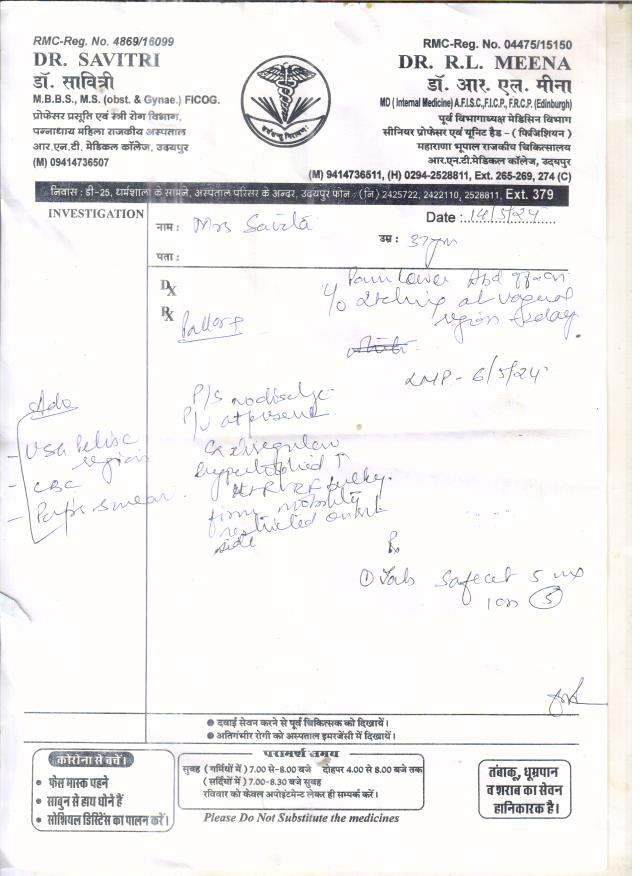 RMC-Reg. No. 4869/16099
DR. SAVITRI
डॉ. सावित्री
M.B.B.S., M.S. (obst. & Gynae.) FICOG.
प्रोफेसर प्रसूति एवं स्त्री रोग विभाग,
पन्नाधाय महिला राजकीय अस्पताल
आर.एन.टी. मेडिकल कॉलेज, उदयपुर
(M) 09414736507
RMC-Reg. No. 04475/15150
DR. R.L. MEENA
डॉ. आर. एल. मीना
MD ( Internal Medicine) A.F.I.S.C.,F.I.C.P., F.R.C.P. (Edinburgh)
पूर्व विभागाध्यक्ष मेडिसिन विभाग
सीनियर प्रोफेसर एवं यूनिट हैड - ( फिजिशियन )
महाराणा भूपाल राजकीय चिकित्सालय
आर.एन.टी.मेडिकल कॉलेज, उदयपुर
(M) 9414736511, (H) 0294-2528811, Ext. 265-269, 274 (C)
निवास : डी-25, धर्मशाला के सामने, अस्पताल परिसर के अन्दर, उदयपुर फोन : (नि) 2425722, 2422110, 2528811, Ext. 379
INVESTIGATION
नाम : Mrs Savita
Date : 14/5/24
उम्र : 37yrs
पता :
Dx
Pain Lower Abd off-on
c/o Itching at vaginal
region today
Rx
Pallor+
LMP - 6/5/24
P/S no discharge
P/V at present
Cx irregular
hypertrophied ↑
bulky
firm mobility
restricted on
side
Adv
- USG Pelvic
region
- CBC
- Pap's smear
Rx
① Tab Safecet 5 mg
1 on ⑤
● दवाई सेवन करने से पूर्व चिकित्सक को दिखायें।
● अतिगंभीर रोगी को अस्पताल इमरजेंसी में दिखायें।
कोरोना से बचें।
• फेस मास्क पहने
• साबुन से हाथ धोनें हैं
• सोशियल डिस्टिेंस का पालन करें।
परामर्श समय
सुबह ( गर्मियों में ) 7.00 से-8.00 बजे दोहपर 4.00 से 8.00 बजे तक
( सर्दियों में ) 7.00-8.30 बजे सुबह
रविवार को केवल अपोइंटमेन्ट लेकर ही सम्पर्क करें।
Please Do Not Substitute the medicines
तंबाकू, धूम्रपान
व शराब का सेवन
हानिकारक है।